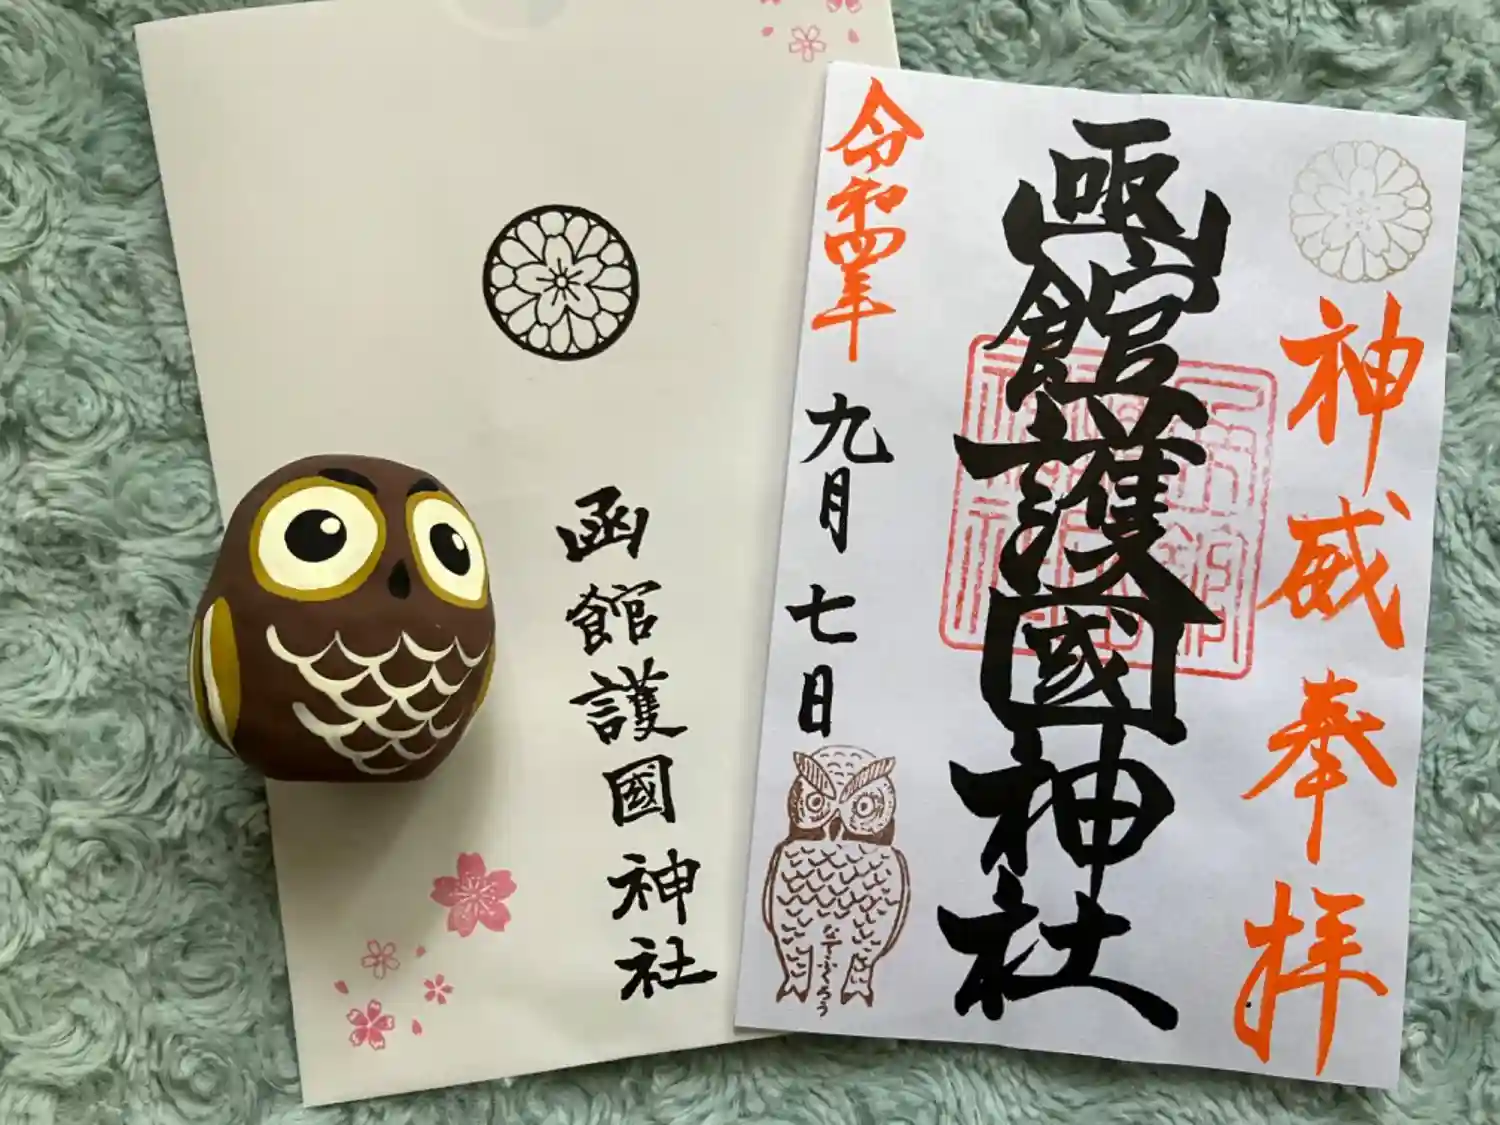 函館護國神社
神威奉拝
函館護國神社
令和四年
九月七日
なでふくろう